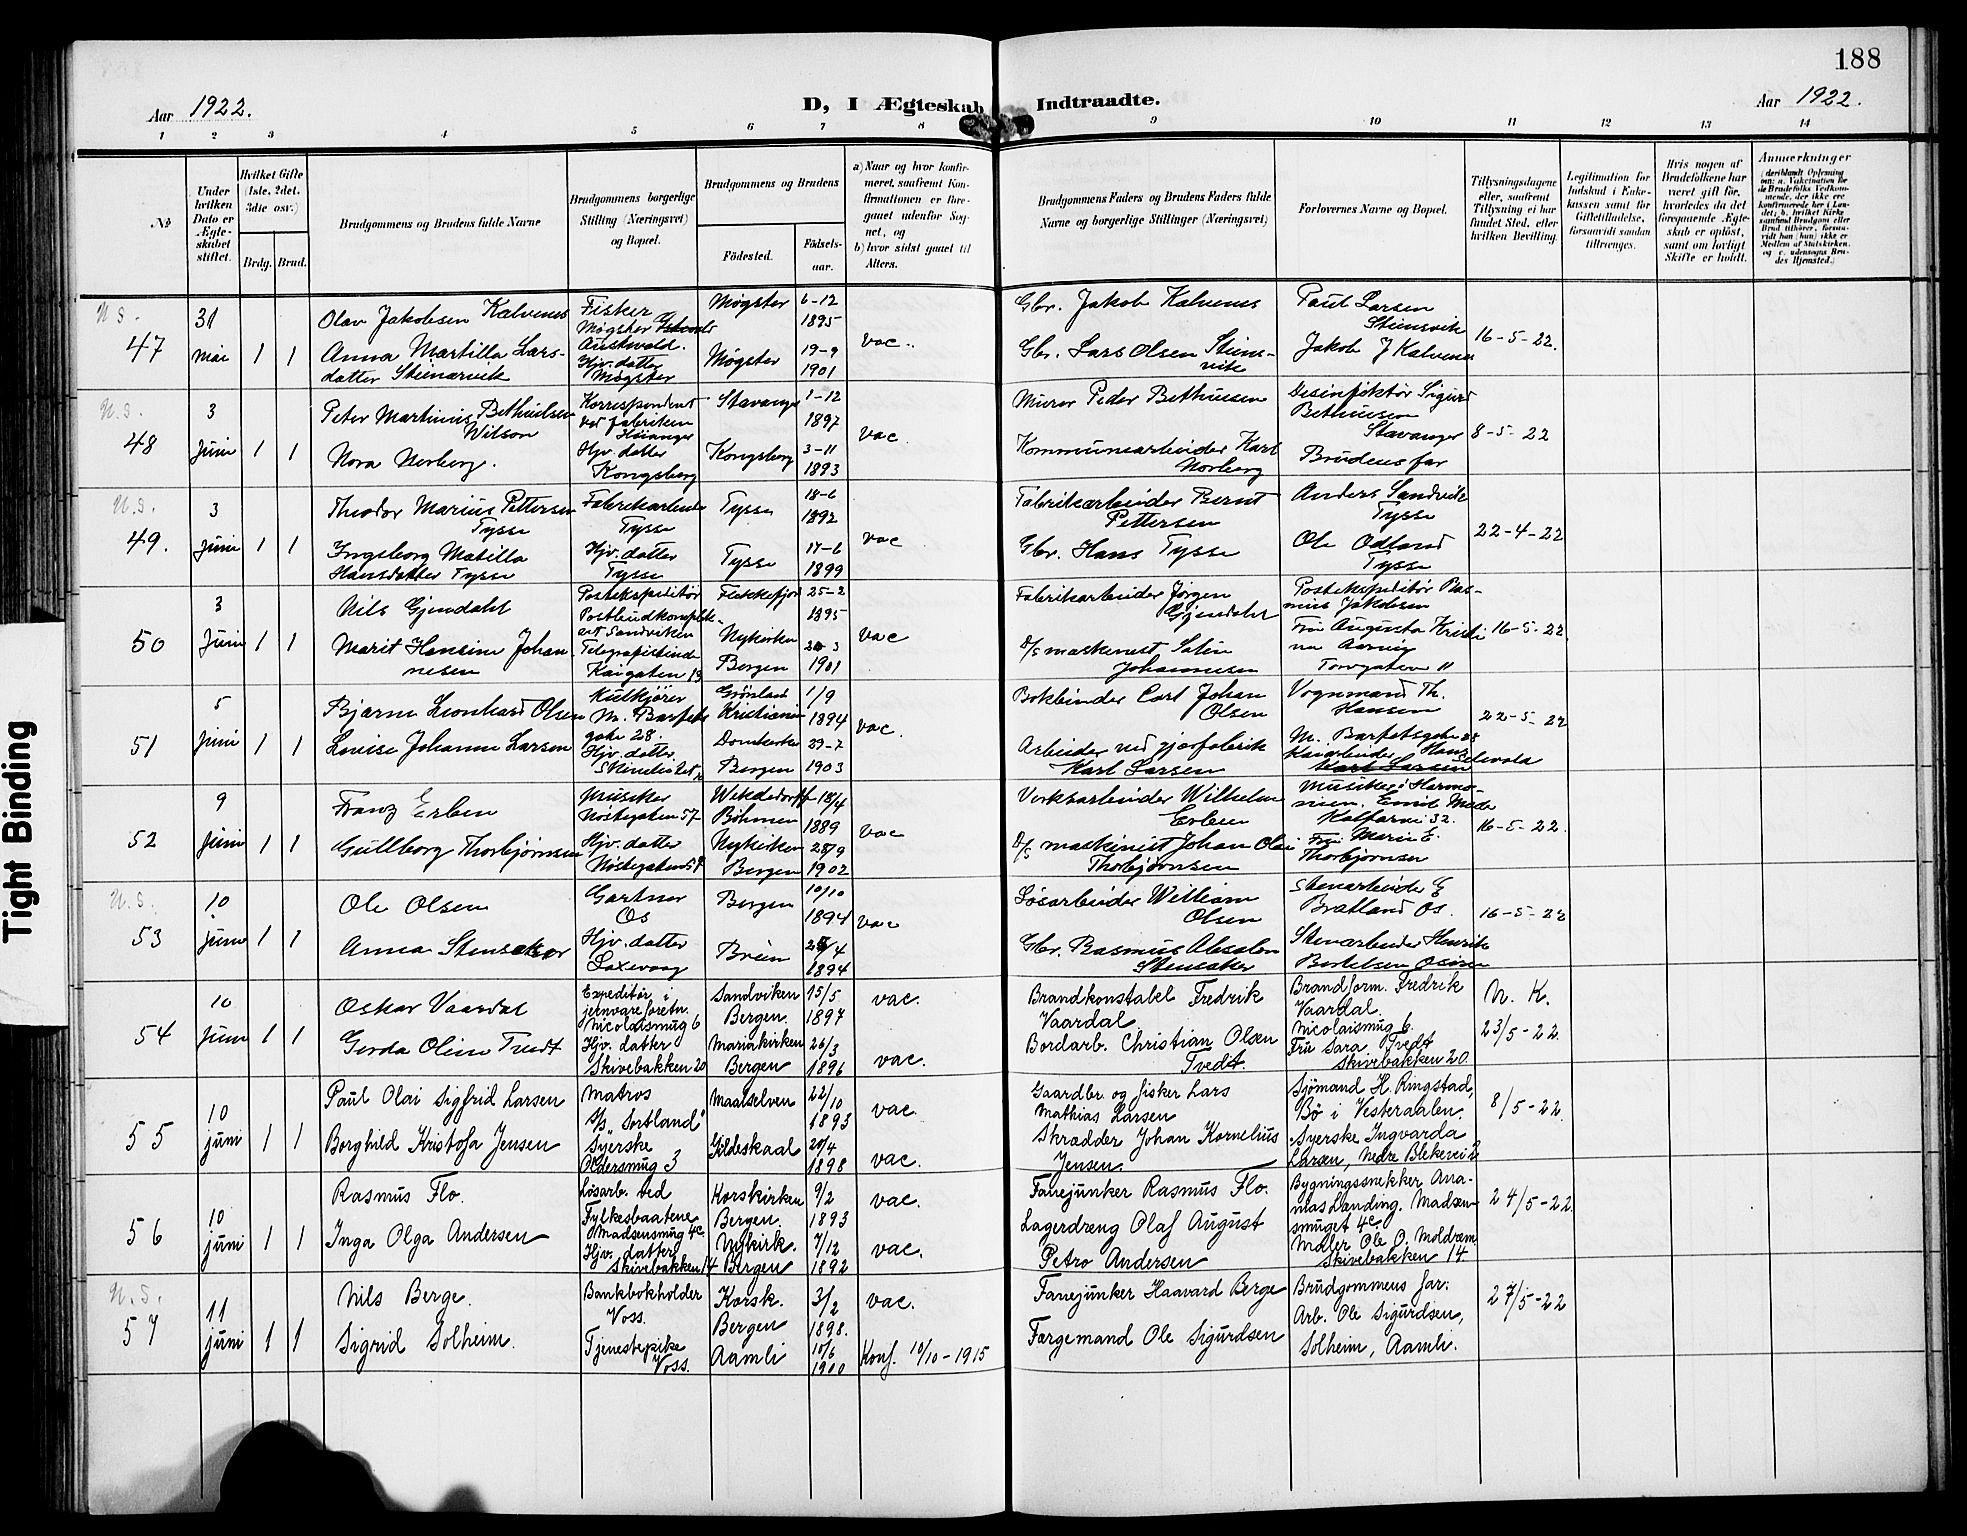 188
Aar 1922.
D, I Ægteskab Indtraadte.
Aar 1922.
1 2 3 4 5 6 7 8 9 10 11 12 13 14
№
Under hvilken Dato er Ægteskabet stiftet.
Hvilket Gifte (1ste, 2det, 3die osv.)
Brdg. Brud.
Brudgommens og Brudens fulde Navne
Brudgommens borgerlige Stilling (Næringsvei) og Bopæl.
Brudgommens og Brudens
Fødested.
Fødselsaar.
a) Naar og hvor konfirmeret, saafremt Konfirmationen er foregaaet udenfor Sognet, og
b) hvor sidst gaaet til Alters.
Brudgommens Faders og Brudens Faders fulde Navne og borgerlige Stillinger (Næringsvei)
Forlovernes Navne og Bopæl.
Tillysningsdagene eller, saafremt Tillysning ei har fundet Sted, efter hvilken Bevilling.
Legitimation for Indskud i Enkekassen samt for Giftetilladelse, forsaavidt saadan tiltrænges.
Hvis nogen af Brudefolkene har været gift før, hvorledes da det foregaaende Ægteskab er opløst, samt om lovligt Skifte er holdt.
Anmerkninger
N.s.
47
31 mai 1 1
Olav Jakobsen Kalvenes
Fisker
Møgster
Austevold.
Møgster 6-12 1895
vac.
Gbr. Jakob Kalvenes
Paul Larsen
Steinsvik
16-5-22.
Anna Martilla Larsdatter Steinarvik
Hjv. datter
Møgster
Møgster 19-9 1901
Gbr. Lars Olsen Steinsvik
Jakob J Kalvenes
N.s.
48
3 Juni 1 1
Peter Martinius Bethuelsen
Wilson
Korrespondent
ved fabrikken
Høianger
Stavanger 1-12 1897
vac.
Murer Peder Bethuesen
Desinfektør Sigurd
Bethuesen
Stavanger
8-5-22
Nora Norberg.
Hjv. datter
Kongsberg
Kongsberg 3-11 1893
Kommunearbeider Karl
Norberg
Brudens far
N.s.
49.
3 Juni 1 1
Theodor Marius Pettersen
Tysse
Fabrikarbeider
Tysse
Tysse 18-6 1892
vac
Fabrikarbeider Bernt
Pettersen
Anders Sandvik
Tysse
22-4-22
Ingeborg Matilla
Hansdatter Tysse
Hjv. datter
Tysse
Tysse 17-6 1899
Gbr. Hans Tysse
Ole Odland
Tysse
50
3 Juni 1 1
Nils Gjendahl
Postekspeditør
Sandviken
Flekkefjord 25-2 1895
vac
Fabrikarbeider Jørgen
Gjendahl
Postekspeditør Rasmus Jakobsen
16-5-22
Marit Hansine Johannesen
Telegrafistinde
Kaigaten 13
Nykirken
Bergen 1901
D/s maskinist
Johannesen
Frk Augusta Kristina
Torvgaten 11
51
5 juni 1 1
Bjarne Leonhard Olsen
Kulkjører
M. Barfots
gate 28.
Grønland
Kristiania 1/9 1894
vac.
Bokbinder Carl Johan
Olsen
Vognmand Th.
Hansen
M. Barfotsgate 28
22-5-22
Lovise Johanne Larsen
Hjv. datter
Domkirken
Bergen 29-7 1903
Arbeider ved gjærfabrik
Karl Larsen
Kaiarbeider Hans
52
9 juni 1 1
Franz Erben
Musiker
Nøstegaten 57
Wekdedorff
Bøhmen 18/4 1889
vac
Verksarbeider Wilhelm
Erben
Musiker i Harmonien. Emil
Kalfarvei 32.
16-5-22.
Gullborg Thorbjørnsen
Hjv. datter
Nøstegaten 57
Nykirken
Bergen 28/9 1902
D/s maskinist Johan Olai
Thorbjørnsen
Marie E.
Thorbjørnsen
N.s.
53
10 juni 1 1
Ole Olsen
Gartner
Os
Bergen 10/10 1894
vac
Løsarbeider William
Olsen
Stenarbeider E
Bratland Os.
16-5-22
Anna Stensaker
Hjv. datter
Laxevaag
Brein 1894
Gbr. Rasmus Absalon
Stensaker
Stenarbeider Henrik
Bertelsen
54
10 Juni 1 1
Oskar Vaardal
Expeditør i
jernvareforetn.
Nicolaismug 6
Sandviken
Bergen. 15/5 1897
vac.
Brandkonstabel Fredrik
Vaardal
Brandform. Fredrik
Vaardal.
Nicolaismug 6.
N. K.
23/5-22.
Gerda Oline Tvedt
Hjv. datter
Skivebakken 20
Mariakirken
Bergen 26/3 1896
vac.
Bordarb. Christian Olsen
Tvedt.
Fru Sara Tvedt
Skivebakken 20.
55
10 juni 1 1
Paul Olai Sigfrid Larsen
Matros
S/s "Sortland"
Maalselven 22/10 1893
vac.
Gaardbr. og fisker Lars
Mathias Larsen
Sjömand H. Ringstad,
Bö i Vesteraalen.
8/5-22.
Borghild Kristofa Jensen
Syerske
Oldersmug 3
Gildeskaal 20/4 1898
vac.
Skrædder Johan Kornelius
Jensen
Syerske Ingvarda
Larsen, Nedre Blekevei 2
56
10 juni 1 1
Rasmus Flo.
Løsarb. ved
Fylkesbaatene
Madsensmug 4c.
Korskirken
Bergen. 9/2 1893
vac.
Fanejunker Rasmus Flo.
Bygningssnekker Ananias Landing. Madsensmuget 4c
24/5-22.
Inga Olga Andersen
Hjv. datter
Skivebakken 14
Nykirk.
Bergen 7/12 1892
vac.
Lagerdræng Olaf August
Petro Andersen
Maler Ole O. Moldræm
Skivebakken 14
N.s.
57
11 juni 1 1
Nils Berge.
Bankbokholder
Voss.
Korsk.
Bergen 3/2 1898.
vac.
Fanejunker Haavard Berge
Brudgommens far.
27/5-22
Sigrid Solheim.
Tjenestepike
Voss.
Aamli 10/6 1900
Konf. 10/10-1915
Fargemand Ole Sigurdsen
Arb. Ole Sigurdsen,
Solheim, Aamli.
Tight Binding